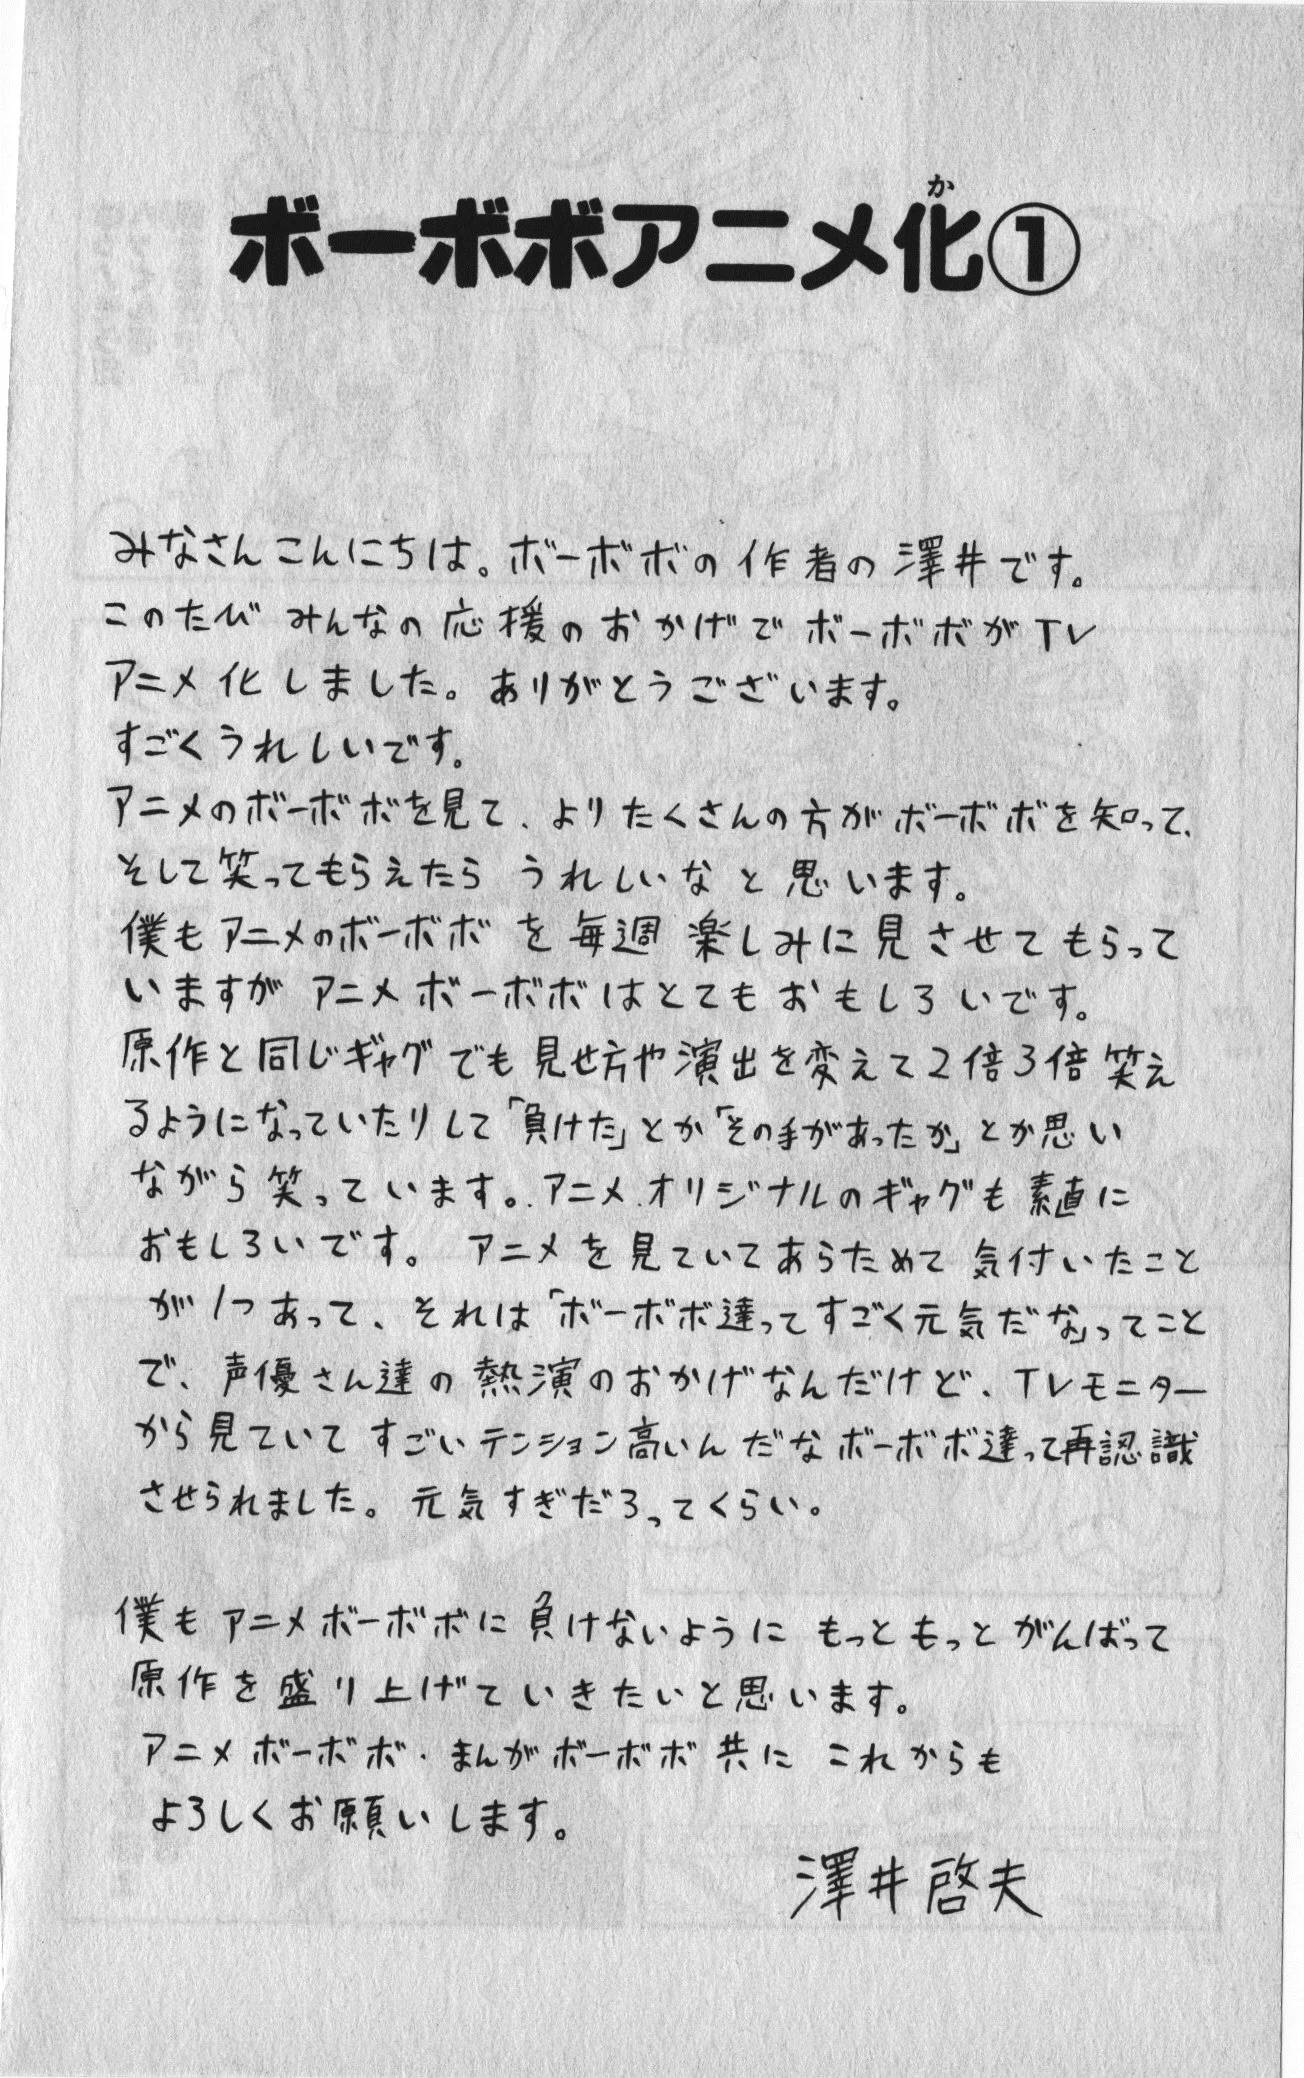 ボーボボアニメ化①
みなさんこんにちは。ボーボボの作者の澤井です。
このたびみんなの応援のおかげでボーボボがTV
アニメ化しました。ありがとうございます。
すごくうれしいです。
アニメのボーボボを見て、よりたくさんの方がボーボボを知って、
そして笑ってもらえたらうれしいなと思います。
僕もアニメのボーボボを毎週楽しみに見させてもらって
いますがアニメボーボボはとてもおもしろいです。
原作と同じギャグでも見せ方や演出を変えて2倍3倍笑え
るようになっていたりして「負けた」とか「その手があったか」とか思い
ながら笑っています。アニメオリジナルのギャグも素直に
おもしろいです。アニメを見ていてあらためて気付いたこと
が1つあって、それは「ボーボボ達ってすごく元気だな」ってこと
で、声優さん達の熱演のおかげなんだけど、TVモニター
から見ていてすごいテンション高いんだなボーボボ達って再認識
させられました。元気すぎだろってくらい。
僕もアニメボーボボに負けないようにもっともっとがんばって
原作を盛り上げていきたいと思います。
アニメボーボボ・まんがボーボボ共にこれからも
よろしくお願いします。
澤井啓夫